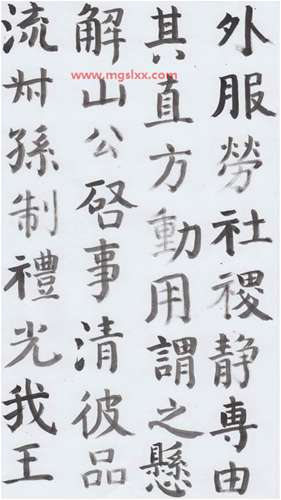 外服勞社稷静専由
其直方動用謂之懸
解山公啓事清彼品
流叔孫制禮光我王
www.mgslxx.com